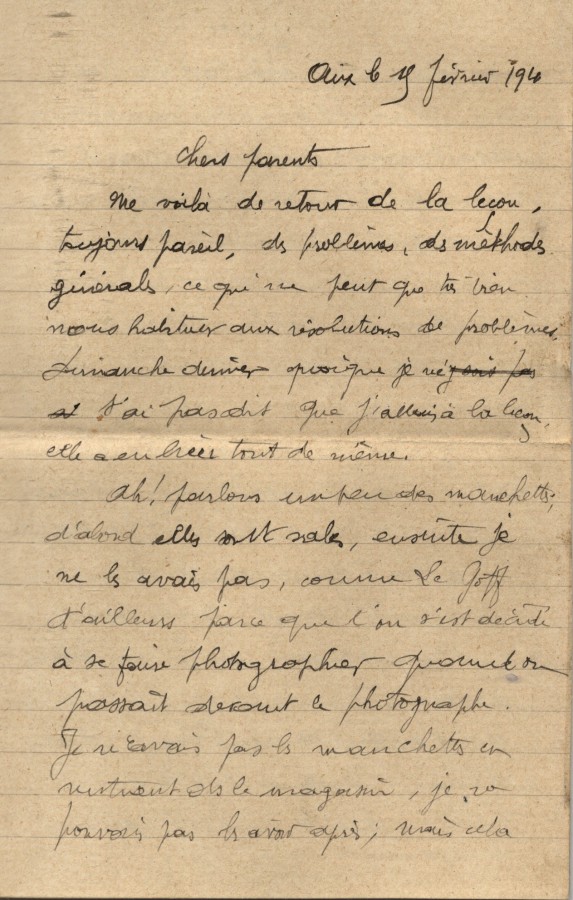 Aix le 15 février 194
Chers parents
Me voilà de retour de la leçon,
toujours pareil, des problèmes, des méthodes
générales, ce qui ne peut que très bien
nous habituer aux résolutions de problèmes.
Dimanche dernier quoique je
t'ai pas dit que j'allais à la leçon,
elle a eu lieu tout de même.
Ah! parlons un peu des manchettes,
d'abord elles sont sales, ensuite je
ne les avais pas, comme Le Goff
d'ailleurs parce que l'on s'est décidé
à se faire photographier quand on
passait devant le photographe.
Je n'avais pas les manchettes en
rentrant ds le magasin, je ne
pouvais pas les avoir après; mais cela